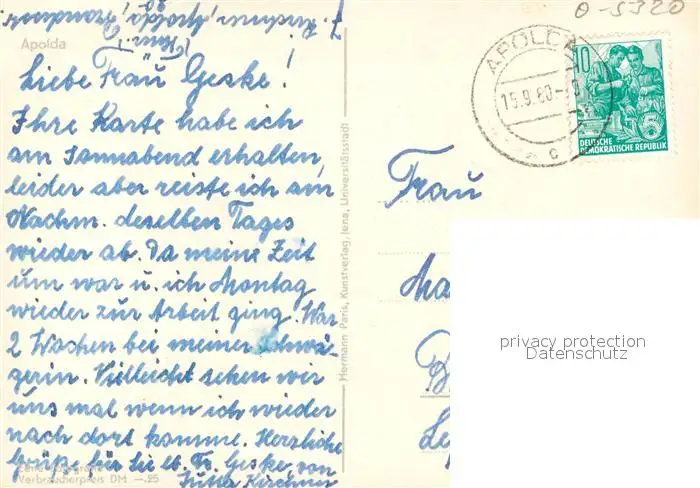 o-5320
Apolda
Liebe Frau Geske!
Ihre Karte habe ich
am Sonnabend erhalten,
leider aber reiste ich am
Nachm. desselben Tages
wieder ab. Da meine Zeit
um war u. ich Montag
wieder zur Arbeit ging. War
2 Wochen bei meiner Schwä-
gerin. Vielleicht sehen wir
uns mal wenn ich wieder
nach dort komme. Herzliche
Grüße für Sie lb. Fr. Geske, von
Jutta Kirchner
Verbraucherpreis DM —.25
Hermann Paris, Kunstverlag, Jena, Universitätsstadt
APOLDA
15.9.60
c
10
5
DEUTSCHE
DEMOKRATISCHE REPUBLIK
Frau
privacy protection
Datenschutz